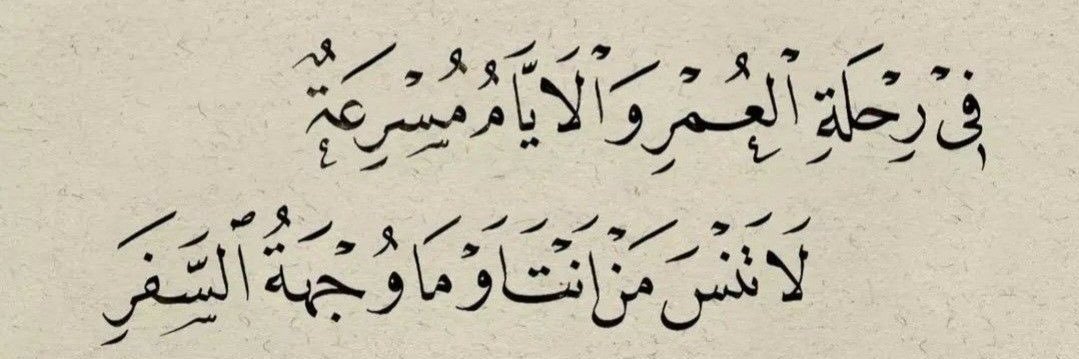 فِيْ رِحْلَةِ الْعُمْرِ وَالْاَيَّامُ مُسْرِعَةٌ
لَا تَنْسَ مَنْ اَنْتَ اَوْ مَا وُجْهَةُ السَّفَرِ